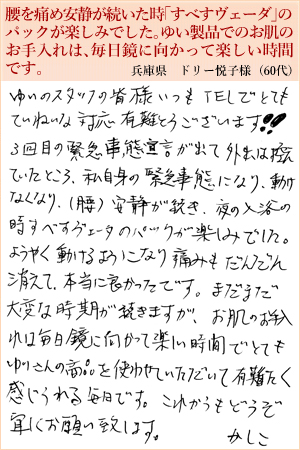 腰を痛め安静が続いた時「すべすヴェーダ」の
パックが楽しみでした。ゆい製品でのお肌の
お手入れは、毎日鏡に向かって楽しい時間
です。
兵庫県　ドリー悦子様（60代）
ゆいのスタッフの皆様 いつも TELでとても
ていねいな対応 有難とうございます!!
3回目の緊急事態宣言が出て外出は控え
ていたところ、私自身の緊急事態になり、動け
なくなり、（腰）安静が続き、夜の入浴の
時すべすヴェーダのパックが楽しみでした。
ようやく動けるようになり痛みもだんだん
消えて、本当に良かったです。まだまだ
大変な時期が続きますが、お肌のお手入
れは毎日鏡に向かって楽しい時間でとても
ゆいさんの商品を使わせていただいて有難たく
感じられる毎日です。これからもどうぞ
宜しくお願い致します。
かしこ